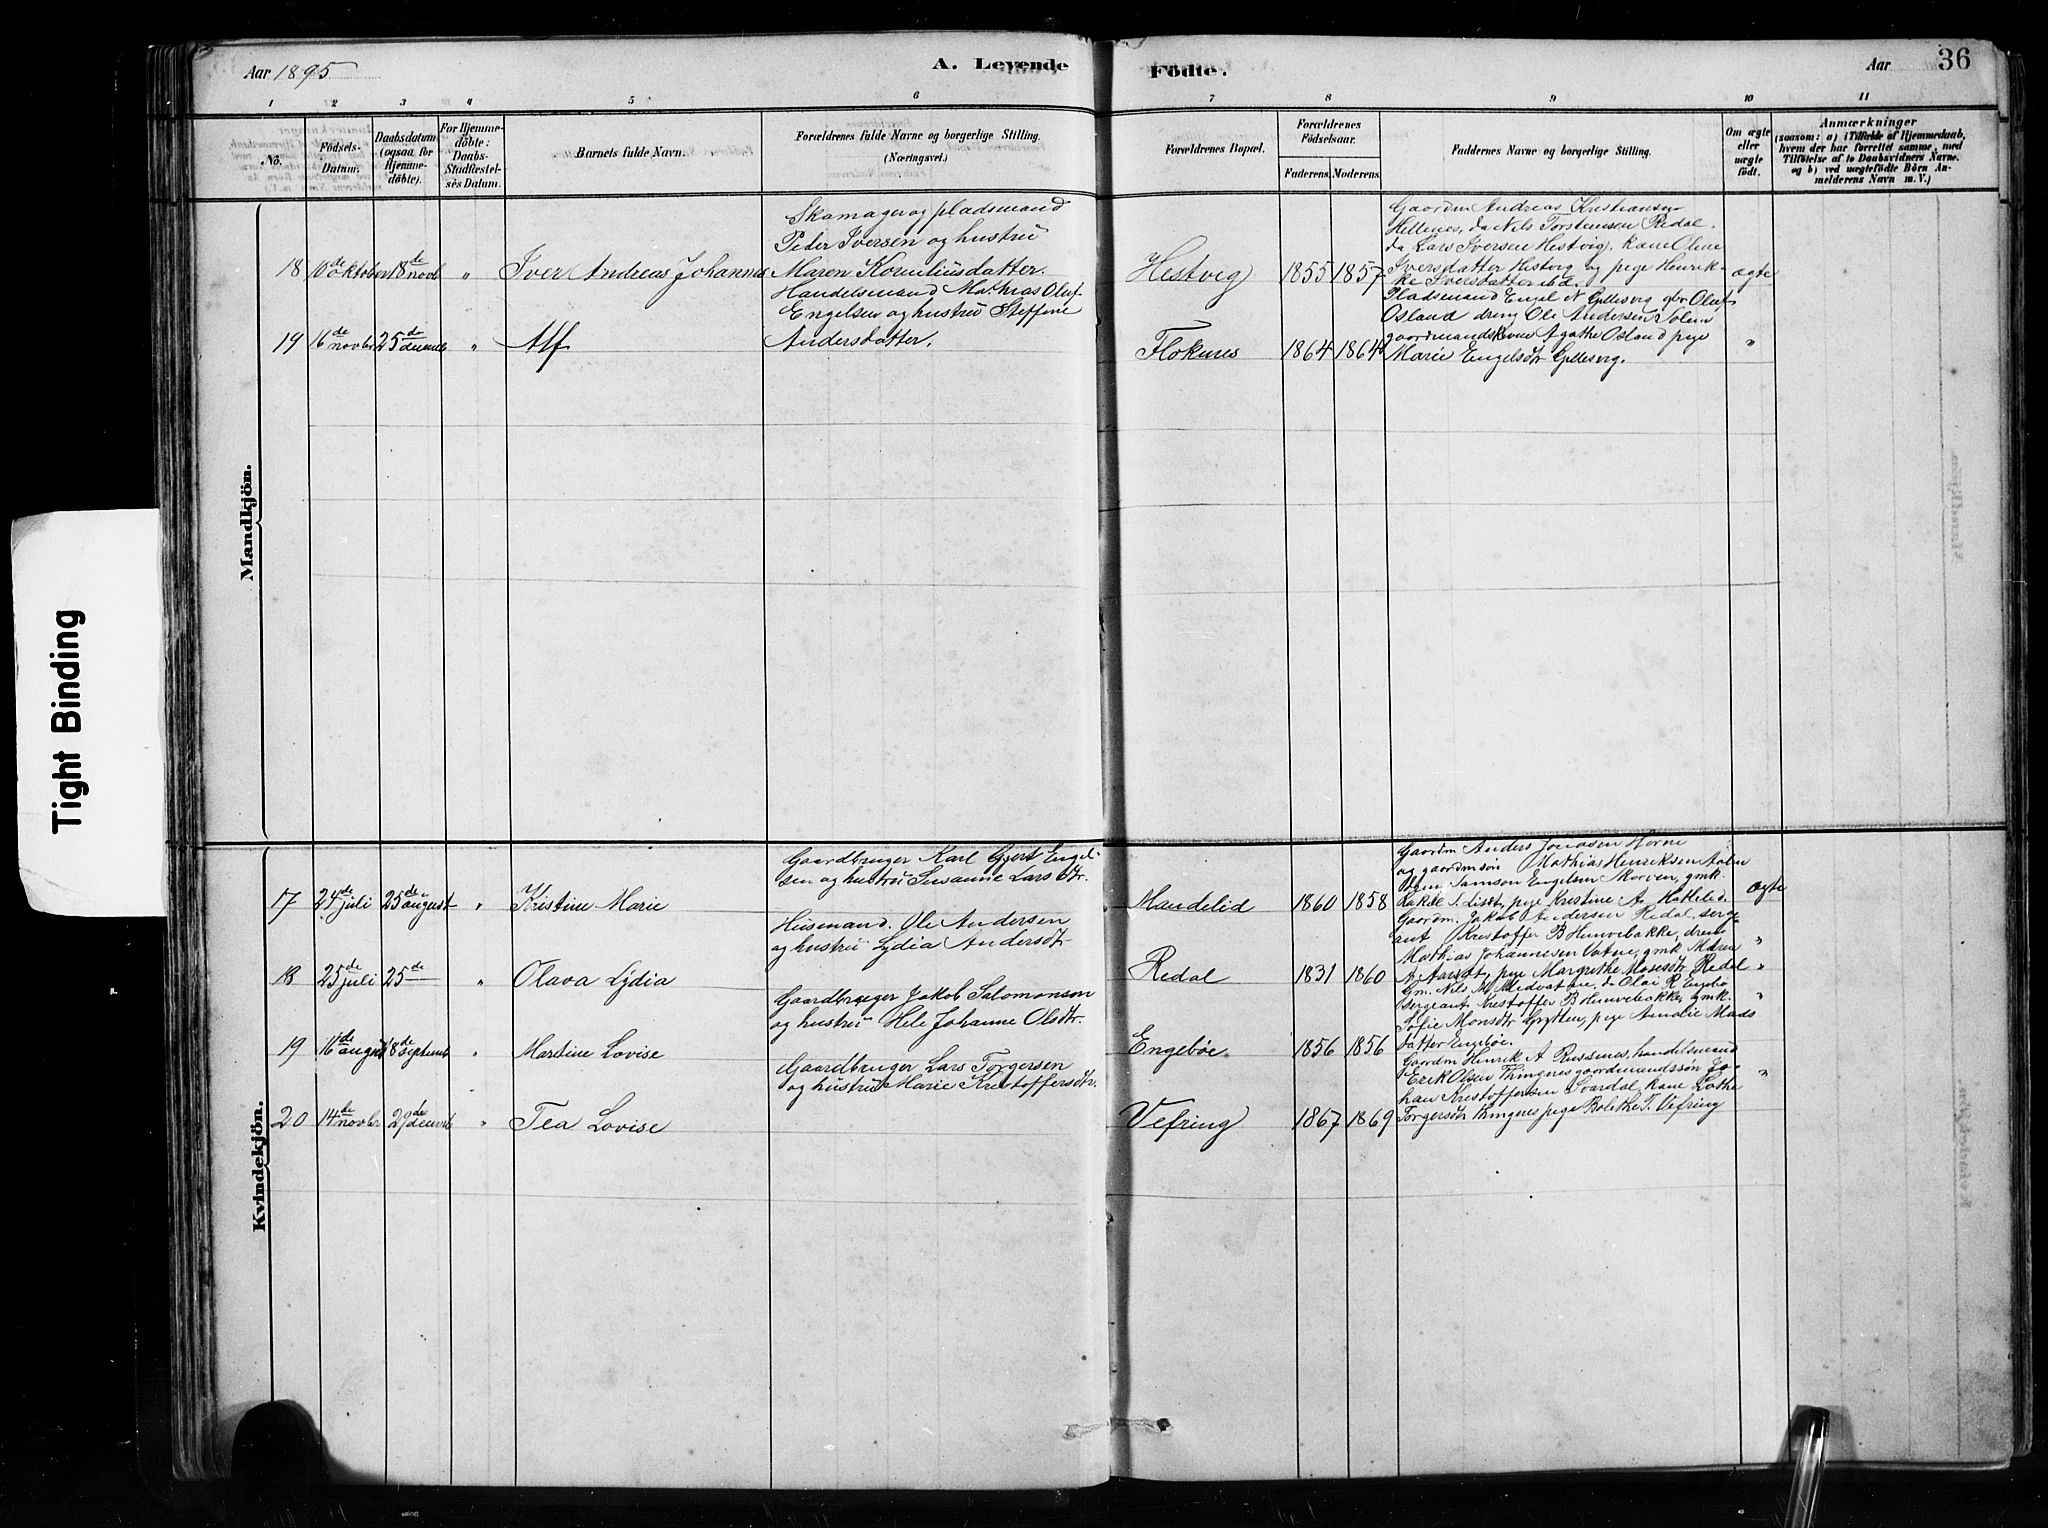 Aar 1895
A. Levende
Födte.
Aar
36
1 2 3 4 5 6 7 8 9 10 11
No.
Födsels-
Datum.
Daabsdatum
(ogsaa for
Hjemme-
döbte).
For Hjemme-
döbte:
Daabs-
Stadfæstel-
ses Datum.
Barnets fulde Navn.
Forældrenes fulde Navne og borgerlige Stilling.
(Næringsvei.)
Forældrenes Bopæl.
Forældrenes
Födselsaar.
Faderens. Moderens.
Faddernes Navne og borgerlige Stilling.
Om ægte
eller
uægte
födt.
Anmærkninger
(saasom: a) i Tilfælde af Hjemmedaab,
hvem der har forrettet samme, med
Tilföielse af to Daabsvidners Navne.
og b) ved uægtefödte Börn An-
melderens Navn m. V.)
Mandkjön.
18 10de oktober 18de novb " Iver Andreas Johannes
Skomager og pladsmand
Peder Iversen og hustru
Maren Korneliusdatter.
Hestvig 1855 1857
Gaardm Andreas Kristiansen
Hellenes, da Nils Torstensen Redal.
da Lars Iversen Hestvig, kone Oline
Iversdatter Hestvig og pige Henrik-
ke Iversdatter ibd.
ægte
19 16de novbr 25de decemb " Alf
Handelsmand Mathias Oluf
Engelsen og hustru Steffine
Andersdatter.
Floknes 1864 1864
Pladsmand Engel N Gyllesvig gbr Oluf
Osland dreng Ole Andersen Solem
gaardmandskone Agathe Osland pige
Marie Engelsdtr Gyllesvig.
"
Kvindekjön.
17 24de juli 25de august " Kristine Marie
Gaardbruger Karl Gjert Engel-
sen og hustru Susanne Larsdtr.
Mandelid 1860 1858
Gaardm Anders Jonasen Horne
og gaardmsön Mathias Henriksen
Samson Engelsen Skorven, gmk.
pige Kristine A.
ægte
18 25de juli 25de — " Olava Lydia
Husmand. Ole Andersen
og hustru Lydia Andersdtr
Redal 1831 1860
Gaardm. Jakob Andersen Redal, serge-
ant Kristoffer B Hunvebakke, dreng
Mathias Johannesen Vatne, gmk Maren
A. Aarset, pige Margrethe Mosesdtr Redal
"
19 16de august 8de septemb " Martine Lovise
Gaardbruger Jakob Salomonson
og hustru Hele Johanne Olsdtr.
Engeböe. 1856 1856
Gm. Nils M. da Olai R Engebö
sergeant Kristoffer B Hunvebakke, gmk.
Sofie Monsdtr Grytten, pige Amalie Mads
datter Engeböe.
"
20 14de novbr. 29de decemb " Tea Lovise
Gaardbruger Lars Torgersen
og hustru Marie Kristoffersdtr.
Vefring 1867 1869
Gaardm Henrik A Russenes, handelsmand
Erik Olsen Thingnes gaardmandssön Jo-
han Kristoffersen Svardal kone Lothe
Torgersdtr Thingnes pige Bolethe T. Vefring
"
Tight Binding